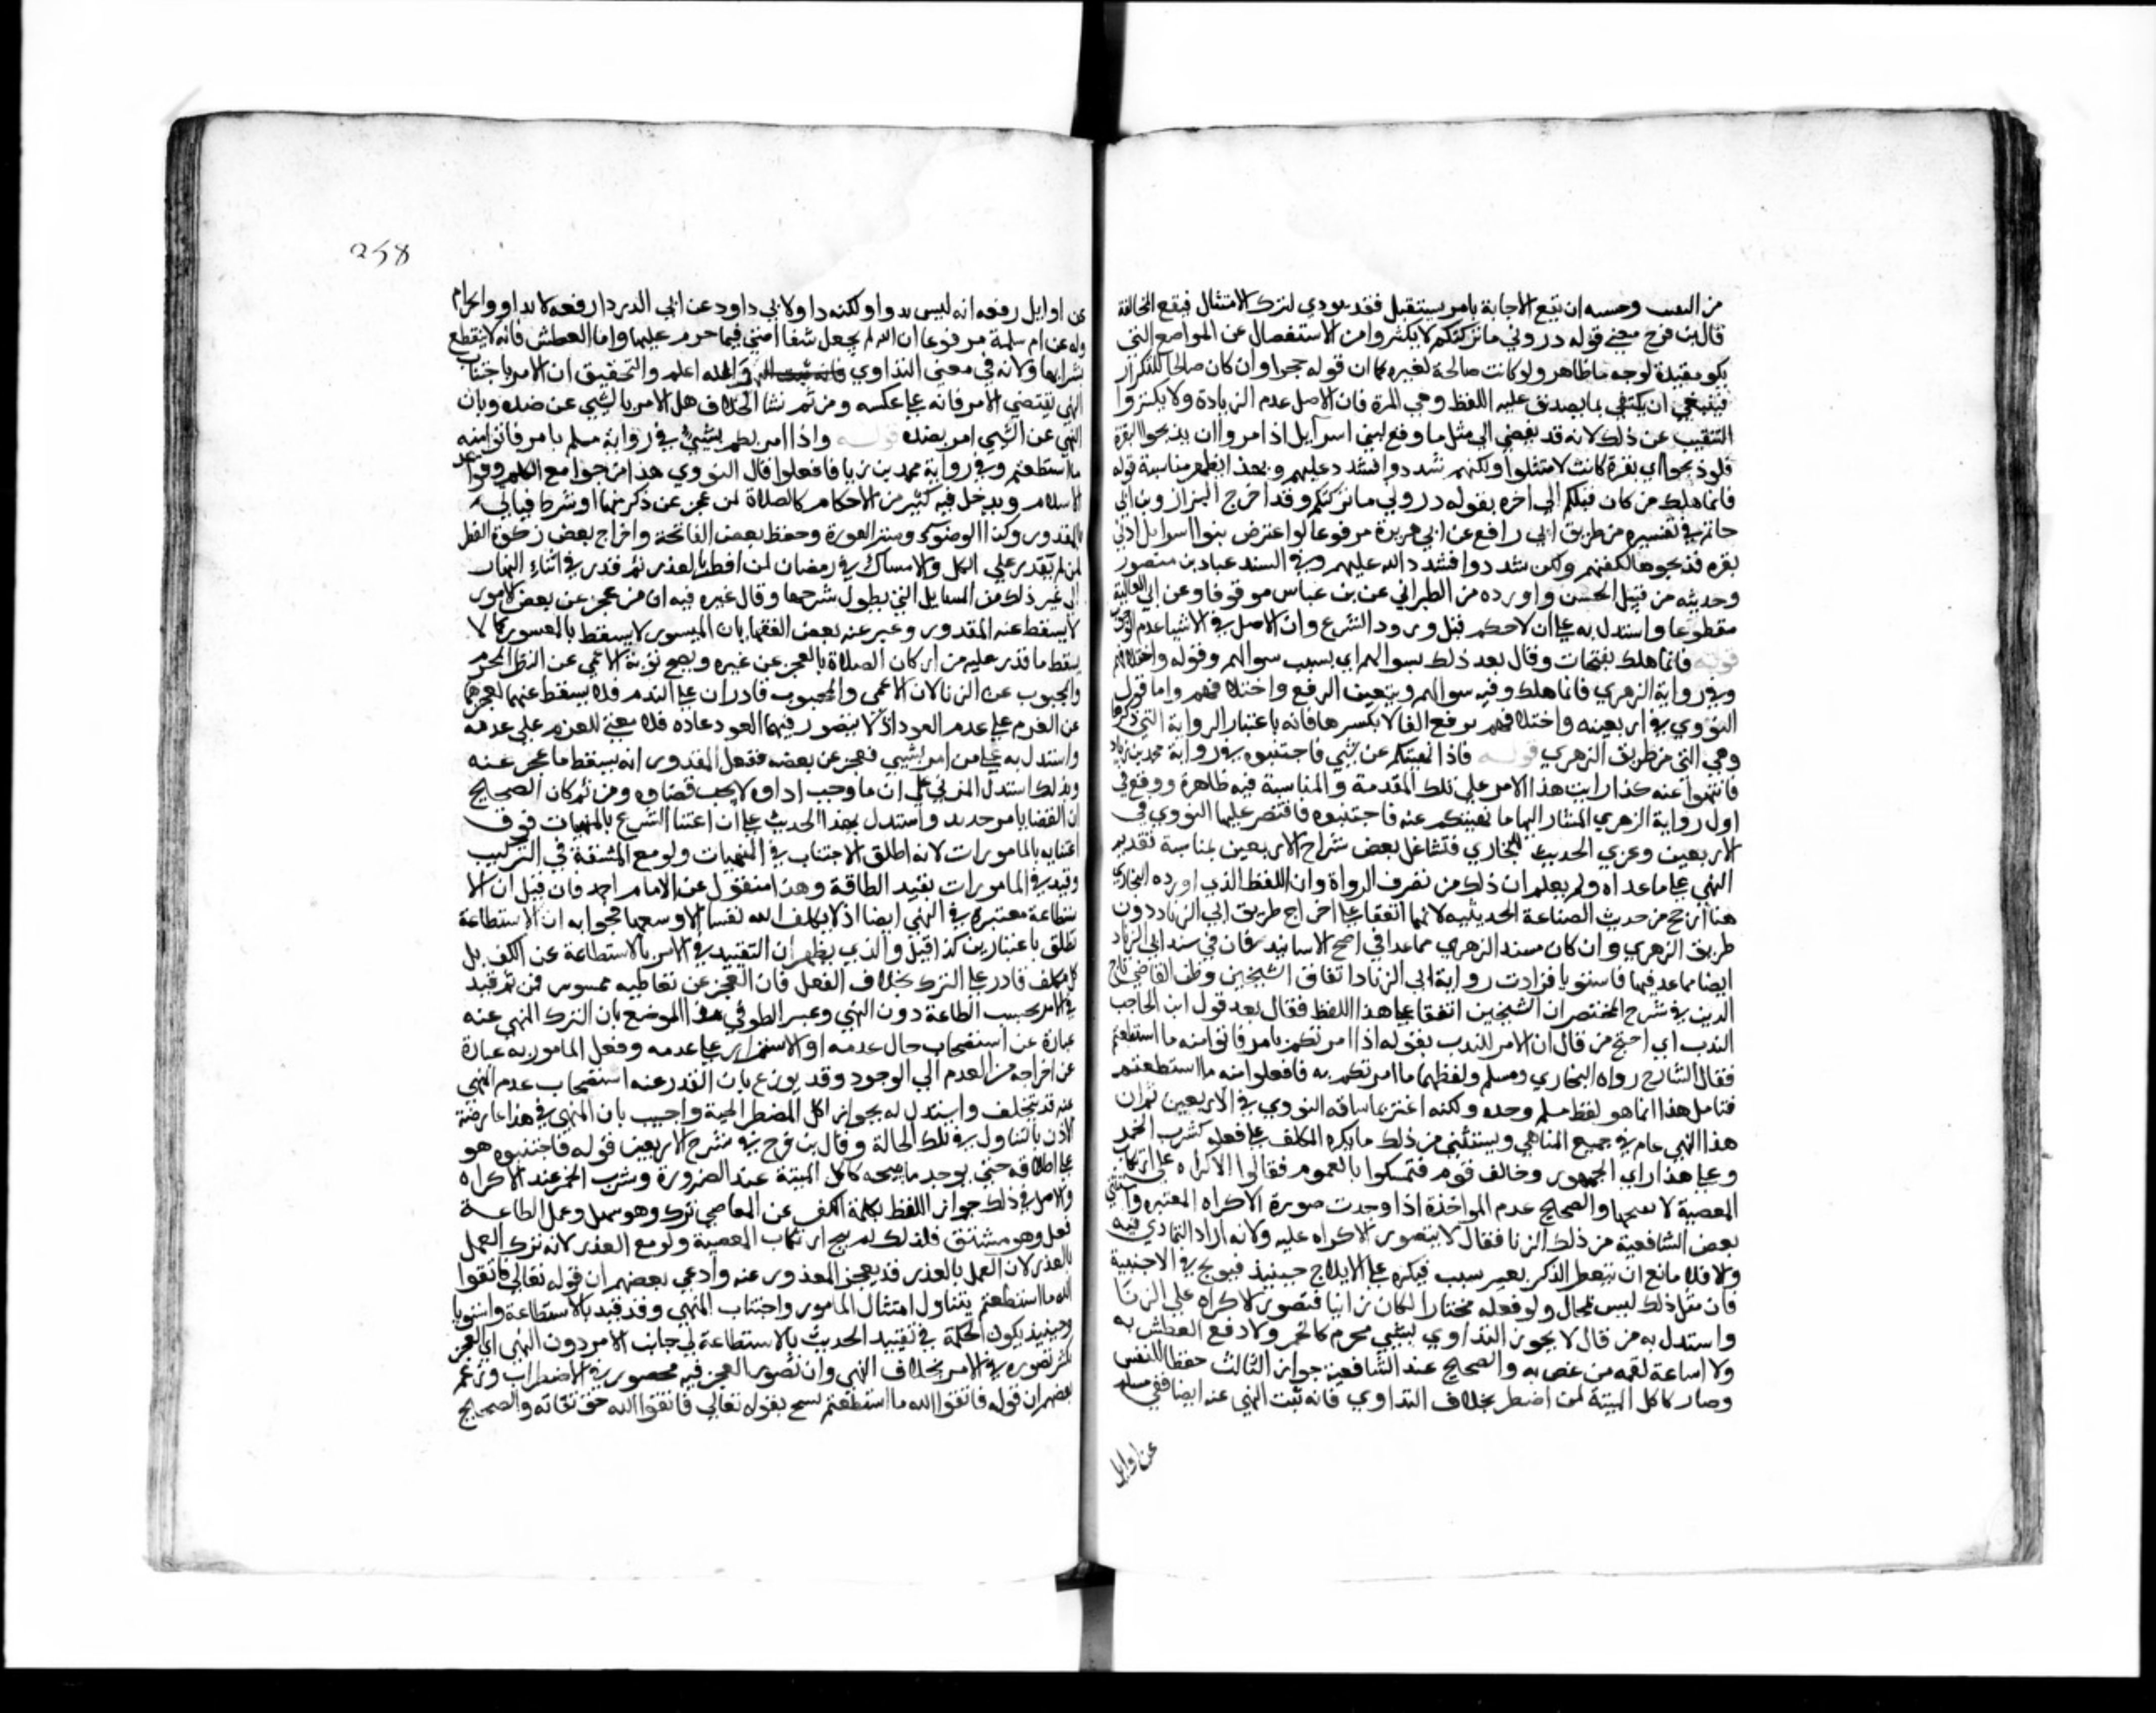 من التعنت وخشيه ان تقع الاجابة بامر يستثقل فقد يودي لترك الامتثال فيقع المخالفة
قال بن فرج معني قوله دروني ماتركتكم لا يكثروا من الاستفصال عن المواضع التي
يكو مفيدة لوجه ما ظاهر ولو كانت صالحة لغيره كما ان قوله حجوا وان كان صالحا للتكرار
فينبغي ان يكتفي بما يصدق عليه اللفظ وهي المرة فان الاصل عدم الزيادة ولا يكثروا
التنقيب عن ذلك لانه قد يفضي الي مثل ما وقع لبني اسرايل اذ امروا ان يذبحوا البقرة
فلو ذبحوا اي بقرة كانت لامتثلوا ولكنهم شددوا فشدد عليهم وبهذا يظهر مناسبة قوله
فانما هلك من كان قبلكم الي اخره بقوله دروني ماتركتكم وقد اخرج البزار وبن ابي
حاتم في تفسيره من طريق ابي رافع عن ابي هريرة مرفوعا لو اعترض بنوا اسرايل ادني
بقره فذبحوها لكفتهم ولكن شددوا فشدد الله عليهم وفي السند عباد بن منصور
وحديثه من قبيل الحسن واورده من الطبراني عن بن عباس موقوفا وعن ابي العالية
مقطوعا واستدل به علي ان لا حكم قبل ورود الشرع وان الاصل في الاشيا عدم الوجوب
قوله فانما هلك بفتحات وقال بعد ذلك بسوالهم اي بسبب سوالهم وقوله واختلافهم
وفي رواية الزهري فانما هلك وفيه سوالهم ويتعين الرفع واختلافهم واما قول
النووي في اربعينه واختلافهم برفع الفا لا بكسرها فانه باعتبار الرواية التي ذكرها
وهي التي من طريق الزهري قوله فاذا نهيتكم عن شي فاجتنبوه في رواية محمد بن زياد
فانتهوا عنه كذا رايت هذا الامر علي تلك المقدمة والمناسبة فيه ظاهرة ووقع في
اول رواية الزهري المشار اليها ما نهيتكم عنه فاجتنبوه فاقتصر عليها النووي في
الاربعين وعزي الحديث للبخاري فتشاغل بعض شراح الاربعين بمناسبة تقديم
النهي علي ما عداه ولم يعلم ان ذلك من تصرف الرواة وان اللفظ الذي اورده البخاري
هنا ارجح من حديث الصناعة الحديثيه لانهما اتفقا علي اخراج طريق ابي الزناد دون
طريق الزهري وان كان سند الزهري مما عد في اصح الاسانيد فان في سند ابي الزناد
ايضا مما عد فيها فاستويا فزادت رواية ابي الزناد اتفاق الشيخين وظن القاضي تاج
الدين في شرح المختصر ان الشيخين اتفقا علي هذا اللفظ فقال بعد قول ابن الحاجب
الندب اي احتج من قال ان الامر للندب بقوله اذا امرتكم بامر فاتوا منه ما استطعتم
فقال الشارح رواه البخاري ومسلم ولفظهما ما امرتكم به فافعلوا منه ما استطعتم
فتامل هذا انما هو لفظ مسلم وحده ولكنه اغتر بما ساقه النووي في الاربعين ثم ان
هذا النهي عام في جميع المناهي ويستثني من ذلك ما يكره المكلف علي فعله كشرب الخمر
وعلي هذا راي الجمهور وخالف قوم فتمسكوا بالعموم فقالوا الاكراه علي ارتكاب
المعصية لا يبيحها والصحيح عدم المواخذة اذا وجدت صورة الاكراه المعتبره واستثني
بعض الشافعية من ذلك الزنا فقال لا يتصور الاكراه عليه ولانه اراد التمادي فيه
ولا فلا مانع ان ينعظ الذكر بغير سبب فيكره علي الايلاج حينيذ فيولج في الاجنبية
فان مثل ذلك ليس بمحال ولو فعله مختارا لكان زانيا فتصور الاكراه علي الزنا
واستدل به من قال لا يجوز التداوي بشي محرم كالخمر ولا دفع العطش به
ولا اساغة لقمه من غص به والصحيح عند الشافعية جواز الثالث حفظا للنفس
وصار كاكل الميتة لمن اضطر بخلاف التداوي فانه ثبت النهي عنه ايضا ففي مسلم
عن اوايل
258
عن اوايل رفعه انه ليس بدوا ولكنه دا ولابي داود عن ابي الدردا رفعه لا تداووا بحرام
وله عن ام سلمة مرفوعا ان الله لم يجعل شفا امتي فيما حرم عليها واما العطش فانه لا ينقطع
بشرابها ولانه في معني التداوي والله اعلم والتحقيق ان الامر باجتناب
النهي يقتضي الامر فانه علي عكسه ومن ثم نشا الخلاف هل الامر بالشي عن ضده وبان
النهي عن الشي امر بضده قوله واذا امرتكم بشي في رواية مسلم بامر فاتوا منه
ما استطعتم وفي رواية محمد بن زيا فافعلوا قال النووي هذا من جوامع الكلم وقواعد
الاسلام ويدخل فيه كثير من الاحكام كالصلاة لمن عجز عن ذكر منها او شرط فياتي
بالمقدور وكذا الوضوء وستر العورة وحفظ بعض الفاتحة واخراج بعض زكوة الفطر
لمن لم يقدر علي الكل والامساك في رمضان لمن افطر بالعذر ثم قدر في اثناء النهار
الي غير ذلك من المسايل التي يطول شرحها وقال غيره فيه ان من عجز عن بعض الامور
لا يسقط عنه المقدور وعبر عنه بعض الفقها بان الميسور لا يسقط بالمعسور كما لا
يسقط ما قدر عليه من اركان الصلاة بالعجز عن غيره ويصح توبة الاعمي عن النظر المحرم
والمجبوب عن الزنا لان الاعمي والمجبوب قادران علي الندم فلا يسقط عنهما لعجزهما
عن العزم علي عدم العود اذ لا يتصور فيهما العود عاده فلا معني للعزم علي عدمه
واستدل به علي من امر بشي فعجز عن بعضه ففعل المقدور انه يسقط ما عجز عنه
وبذلك استدل المزني علي ان ما وجب اداوه لا يجب قضاوه ومن ثم كان الصحيح
ان القضا بامر جديد واستدل بهذا الحديث علي ان اعتنا الشرع بالمنهيات فوق
اعتنايه بالمامورات لانه اطلق الاجتناب في المنهيات ولو مع المشقة في الترك
وقيد في المامورات بقيد الطاقة وهذا منقول عن الامام احمد فان قيل ان الا
ستطاعة معتبرة في النهي ايضا اذ لا يكلف الله نفسا الا وسعها فجوابه ان الاستطاعة
تطلق باعتبارين كذا قيل والذي يظهر ان التقييد في الامر بالاستطاعة عن الكف بل
كل مكلف قادر علي الترك بخلاف الفعل فان العجز عن تعاطيه محسوس فمن ثم قيد
في الامر بحسب الطاعة دون النهي وعبر الطوفي الموضع بان الترك المنهي عنه
عبارة عن استصحاب حال عدمه او الاستمرار علي عدمه وفعل المامور به عبارة
عن اخراجه من العدم الي الوجود وقد يوزع بان القدر عنه استصحاب عدم المنهي
عنه قد يتخلف واستدل له بجواز اكل المضطر الميتة واجيب بان النهي في هذا عارضه
الاذن بالتناول في تلك الحالة وقال بن فرج في شرح الاربعين قوله فاجتنبوه هو
علي اطلاقه حتي يوجد ما يبيحه كاكل الميتة عند الضرورة وشرب الخمر عند الاكراه
والاصل في ذلك جواز اللفظ بكلمة الكف عن المعاصي ترك وهو سهل وعمل الطاعة
فعل وهو مشتق فلذلك لم يبح ارتكاب المعصية ولو مع العذر لانه ترك العمل
بالعذر لان العمل بالعذر قد يعجز المعذور عنه وادعي بعضهم ان قوله تعالي فاتقوا
الله ما استطعتم يتناول امتثال المامور واجتناب المنهي وقد قيد بالاستطاعة واستويا
وحينيذ يكون الحكمة في تقييد الحديث بالاستطاعة في جانب الامر دون النهي اي العجز
يكثر تصوره في الامر بخلاف النهي وان تصور العجز فيه محصور في الاضطراب وزعم
بعضهم ان قوله فاتقوا الله ما استطعتم نسخ بقوله تعالي فاتقوا الله حق تقاته والصحيح